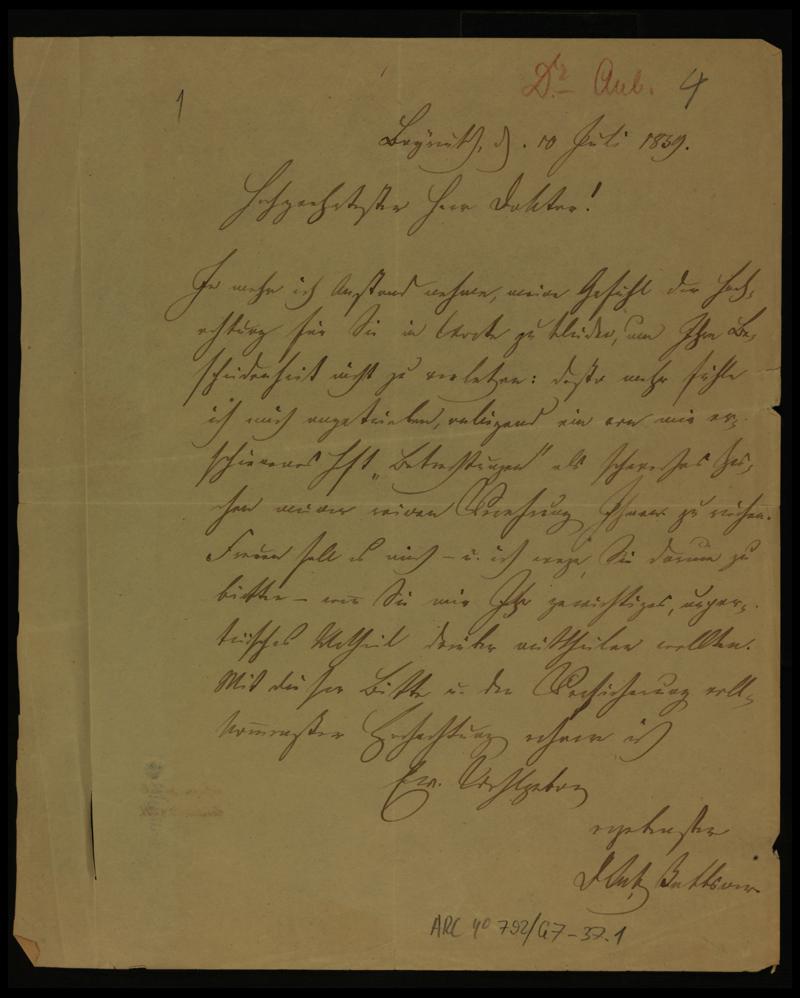 Dr. Aub. 4
1
Bayreuth, d. 10 Juli 1839.
Hochgeehrtester Herr Doktor!
Je mehr ich Anstand nehme, meine Gefühl der Hoch-
achtung für Sie in Worte zu kleiden, um Ihre Be-
scheidenheit nicht zu verletzen: desto mehr fühle
ich mich angetrieben, anliegend ein von mir er-
schienenes Heft „Betrachtungen" als schwaches Zei-
chen meiner wahren Verehrung Ihnen zu weihen.
Freuen soll es mich – u. ich wage, Sie darum zu
bitten – wenn Sie mir Ihr gewichtiges, unpar-
teiisches Urtheil darüber mittheilen wollten.
Mit dieser Bitte u. der Versicherung voll-
kommenster Hochachtung nenne ich
Ew. Wohlgeboren
ergebenster
ARC 4° 792/G7-37.1